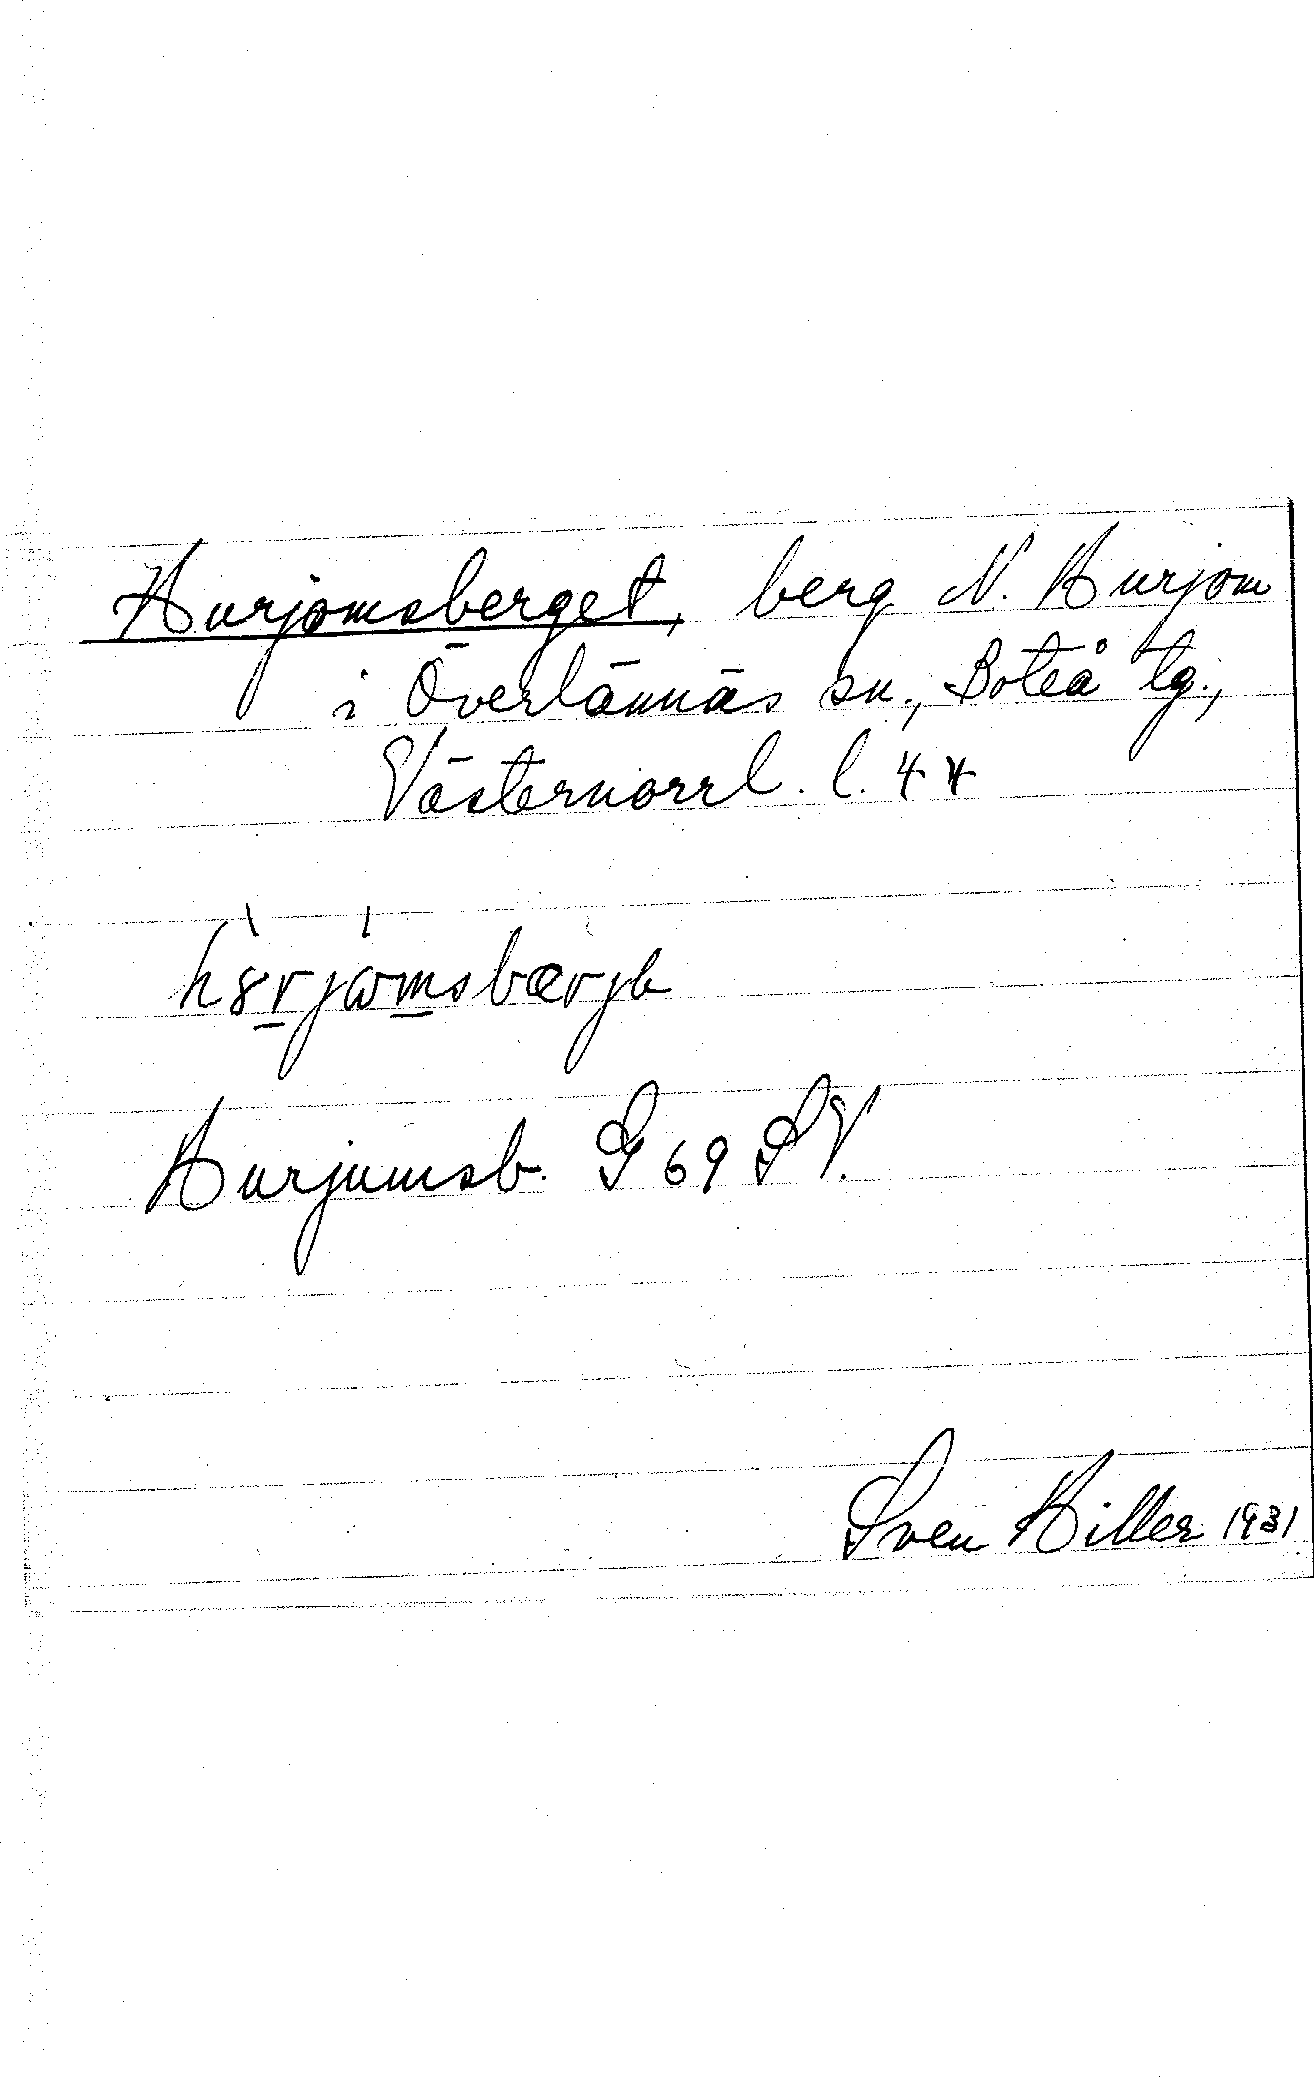 Hurjomsberget, berg N. Hurjom
i Överlännäs sn., Boteå tg.,
Västernorrl. l. 44
Hurjumsb. G 69 SV.
Sven Hiller 1931